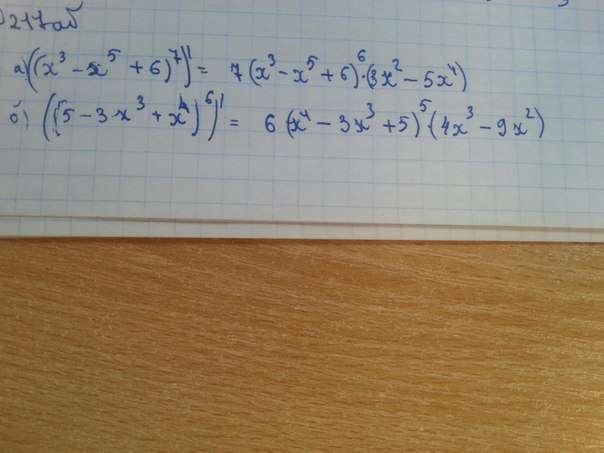 217аб
а) ((x³ - x⁵ + 6)⁷)' = 7(x³ - x⁵ + 6)⁶·(3x² - 5x⁴)
б) ((5 - 3x³ + x⁴)⁶)' = 6(x⁴ - 3x³ + 5)⁵·(4x³ - 9x²)